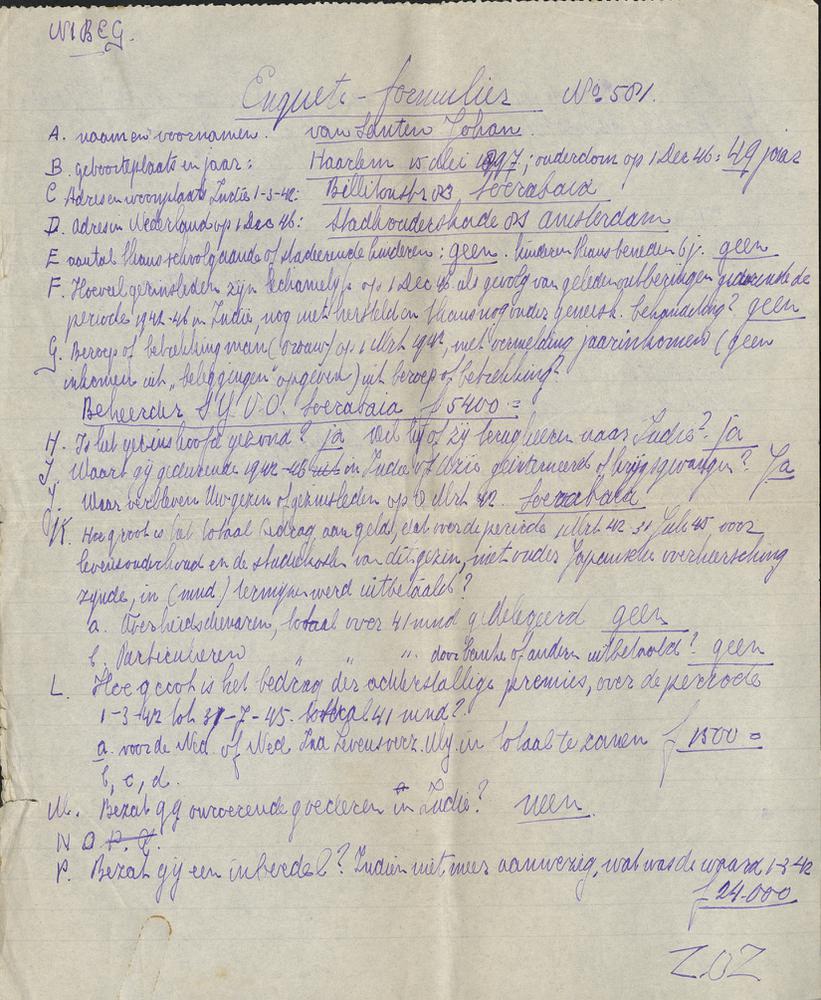 NIBEG.
Enquete-formulier No 581.
A. naam en voornamen. van Santen Johan.
B. geboorteplaats en jaar: Haarlem 15 Mei 1897; ouderdom op 1 Dec 46: 49 jaar
C Adres en woonplaats Indië 1-3-42: Billitonstr 83 Soerabaia
D. Adres in Nederland op 1 Dec 46: Stadhouderskade 83 Amsterdam
E aantal thans schoolgaande of studeerende kinderen: geen. kinderen thans beneden 6 j. geen
F. Hoeveel gezinsleden zijn lichamelijk op 1 Dec 46 als gevolg van geleden ontberingen gedurende de
periode 1942-46 in Indië, nog niet hersteld en thans nog onder geneesk. behandeling? geen
G. Beroep of betrekking man (vrouw) op 1 Mrt 1942, met vermelding jaarinkomen (geen
inkomen uit "beleggingen" opgeven) uit beroep of betrekking?
Beheerder S.Y.V.O. Soerabaia f 5400=
H. Is het gezinshoofd gezond? ja Wil hij of zij terugkeeren naar Indië? Ja
I. Waart gij gedurende 1942-46 in Indië of Azië geinterneerd of krijgsgevangen? Ja
J. Waar verbleven Uw gezin of gezinsleden op 8 Mrt 42. Soerabaia
K. Hoe groot is het totaal bedrag aan geld, dat over de periode 1 Mrt 42-31 Juli 45 voor
levensonderhoud en de studiekosten van dit gezin, niet onder Japansche overheersching
zijnde, in (mnd) termijnen werd uitbetaald?
a. Overheidsdienaren, totaal over 41 mnd gedelegeerd geen
b. Particulieren " " " door banke of anderen uitbetaald? geen
L. Hoe groot is het bedrag der achterstallige premies, over de periode
1-3-42 tot 31-7-45. totaal 41 mnd?
a. voor de Ned. of Ned Ind Levensverz. Mij in totaal te zamen f 1500=
b, c, d.
M. Bezat gij onroerende goederen in Indië? neen.
N O P. Q.
P. Bezat gij een inboedel? Indien niet meer aanwezig, wat was de waard 1-3-42
f 24.000
Z.O.Z